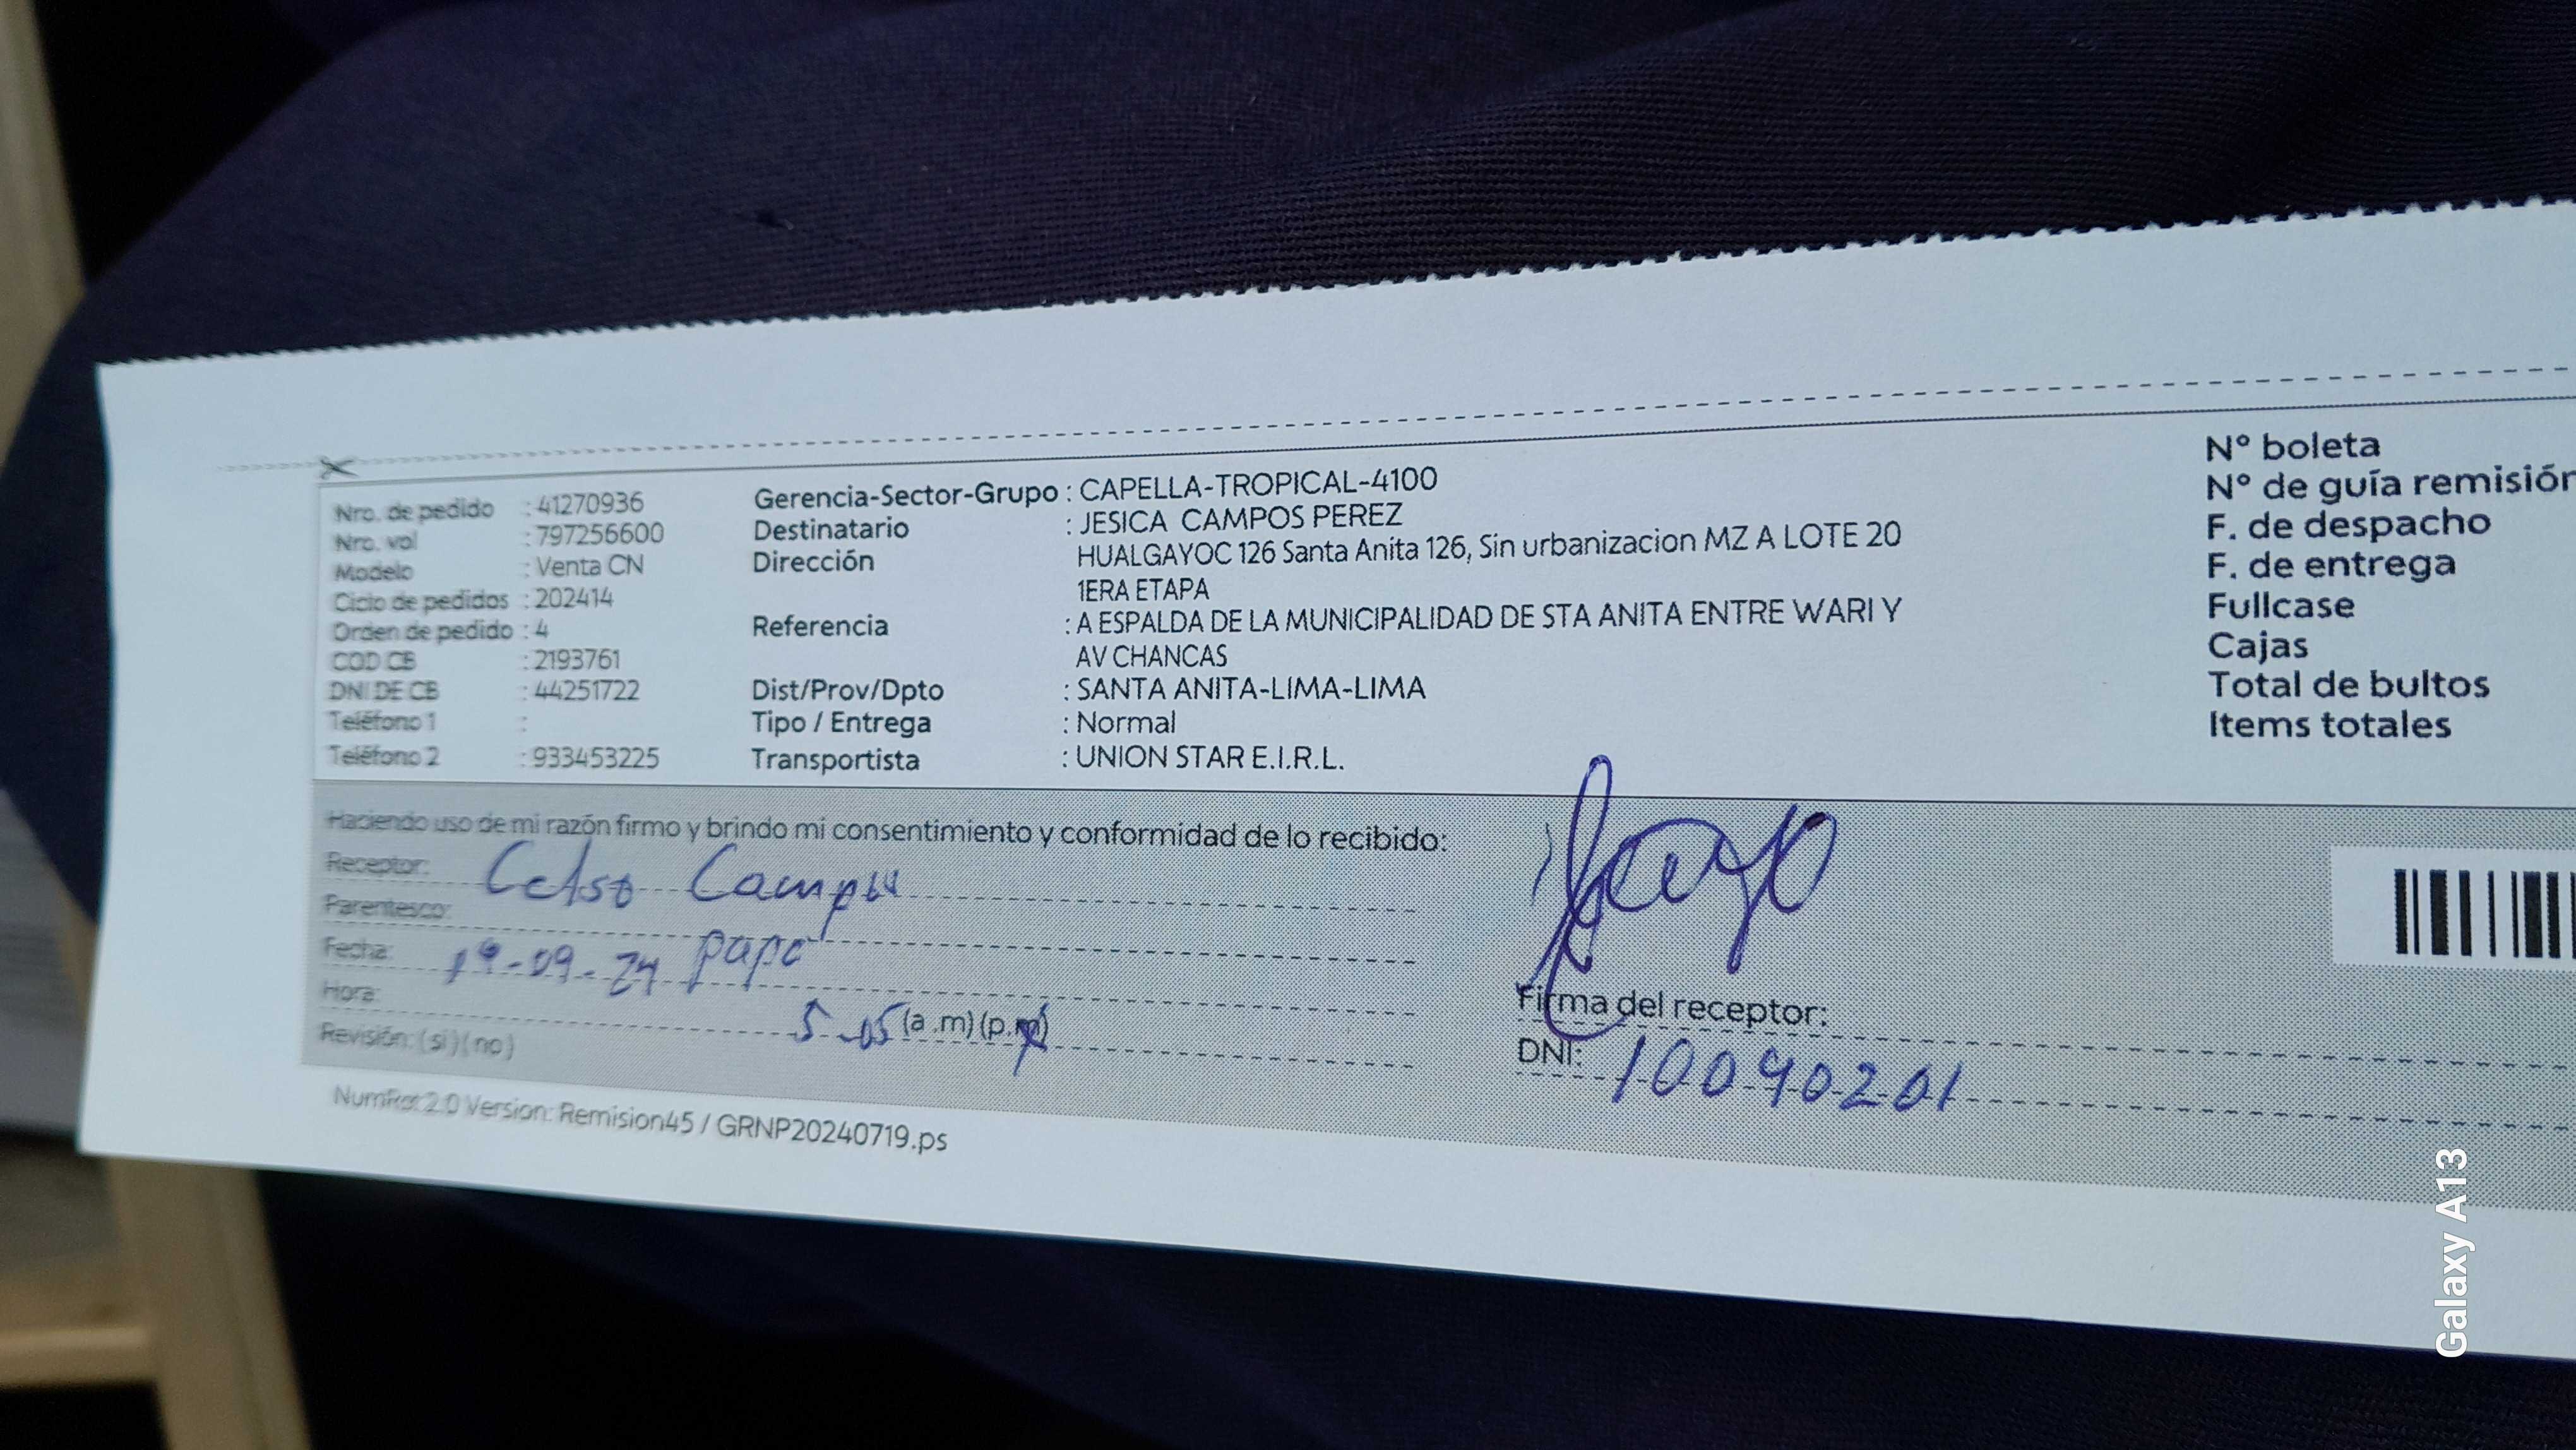 Nro. de pedido : 41270936
Nro. vol : 797256600
Modelo : Venta CN
Ciclo de pedidos : 202414
Orden de pedido : 4
COD CB : 2193761
DNI DE CB : 44251722
Teléfono 1 :
Teléfono 2 : 933453225
Gerencia-Sector-Grupo : CAPELLA-TROPICAL-4100
Destinatario : JESICA CAMPOS PEREZ
Dirección HUALGAYOC 126 Santa Anita 126, Sin urbanizacion MZ A LOTE 20
1ERA ETAPA
Referencia : A ESPALDA DE LA MUNICIPALIDAD DE STA ANITA ENTRE WARI Y
AV CHANCAS
Dist/Prov/Dpto : SANTA ANITA-LIMA-LIMA
Tipo / Entrega : Normal
Transportista : UNION STAR E.I.R.L.
N° boleta
N° de guía remisión
F. de despacho
F. de entrega
Fullcase
Cajas
Total de bultos
Items totales
Haciendo uso de mi razón firmo y brindo mi consentimiento y conformidad de lo recibido:
Receptor: Celso
Parentesco: papa
Fecha: 19-09-24
Hora: 5-05 (a.m) (p.m)
Revisión: (si) (no)
Firma del receptor:
DNI: 10090201
NumRot 2.0 Version: Remision45 / GRNP20240719.ps
Galaxy A13